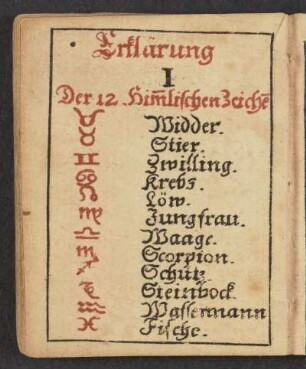 Erklärung
I
Der 12 Him̃lischen Zeichẽ
♈ Widder.
♉ Stier.
♊ Zwilling.
♋ Krebs.
♌ Löw.
♍ Jungfrau.
♎ Waage.
♏ Scorpion.
♐ Schütz.
♑ Steinbock.
♒ Wassermann
♓ Fische.